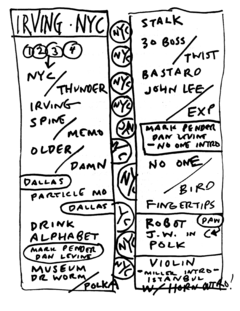 IRVING · NYC
1 2 3 4
NYC
THUNDER
IRVING
SPINE
MEMO
OLDER
DAMN
DALLAS
PARTICLE MO
DALLAS
DRINK
ALPHABET
MARK PENDER
DAN LEVINE
MUSEUM
DR WORM
POLKA
NYC
NYC
NYC
NYC
NYC
NYC
STALK
30 BOSS
TWIST
BASTARD
JOHN LEE
EXP
MARK PENDER
DAN LEVINE
- NO ONE INTRO
NO ONE
BIRD
FINGERTIPS
ROBOT DAN
J.W. IN
POLK
VIOLIN
- MILLER INTRO -
ISTANBUL
W/ HORN INTRO!